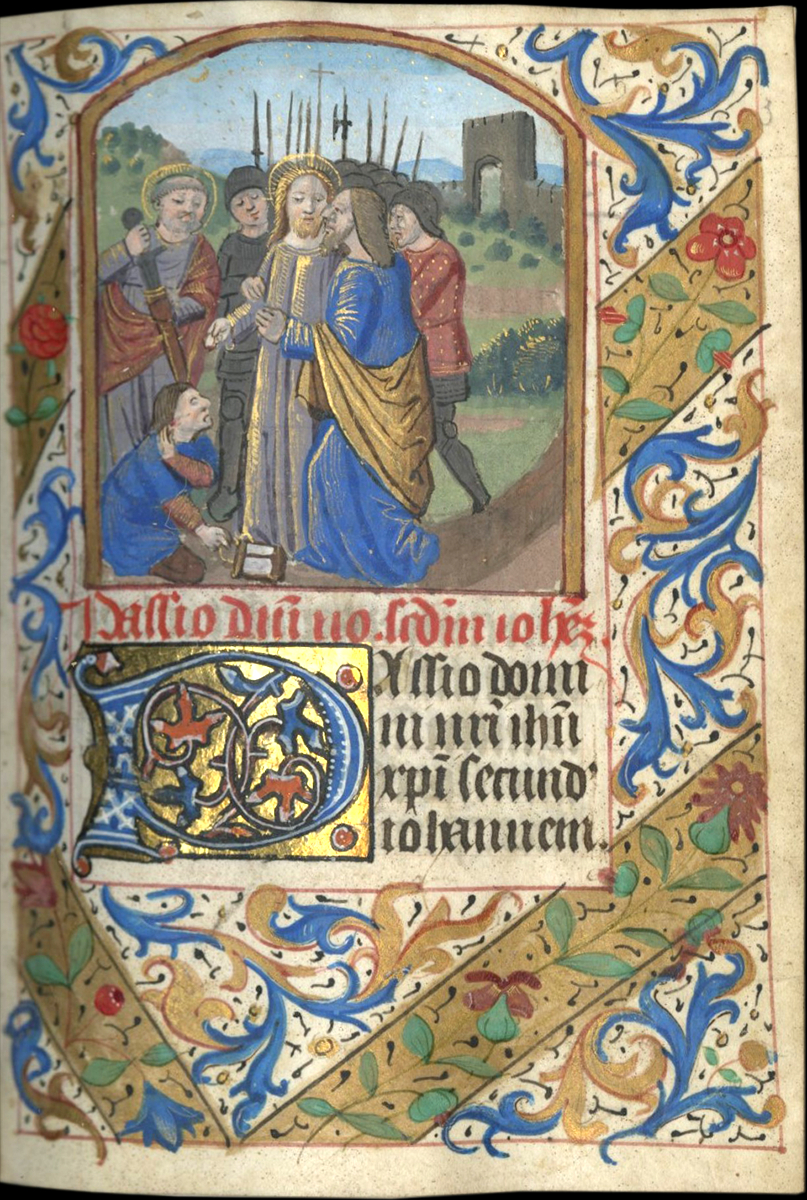 Passio dn̄i nō. scdm̄ ioħez.
Passio domi
ni nr̄i ih̄u
xp̄i secund'
iohannem.